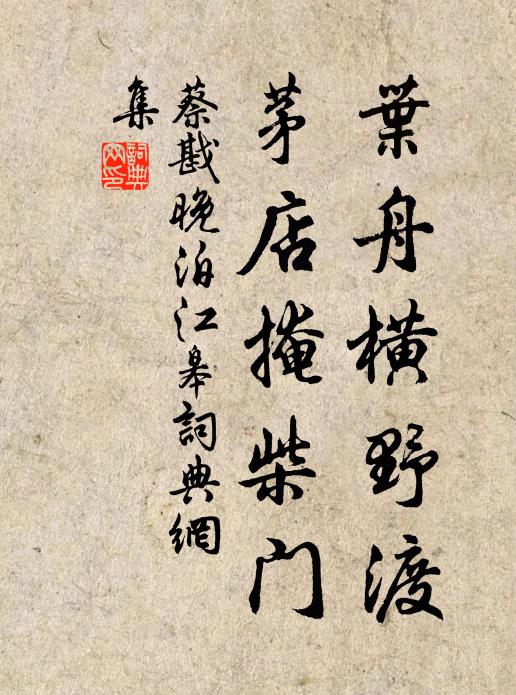 葉舟橫野渡
茅店掩柴门
蔡戡晚泊江皋詞典網
集
詞典
网印